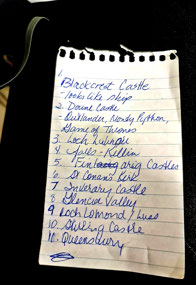 1.
Blackcrest Castle
- looks like ship
2. Doune Castle
- Outlander, Monty Python,
Game of Thrones
3. Loch Lubnaig
4. Falls - Killin
5. Finlarig Castles
6. St Conans Kirk
7 Inverary Castle
8 Glencoe Valley
9 Loch Lomond / Luss
10. Stirling Castle
11. Queensferry